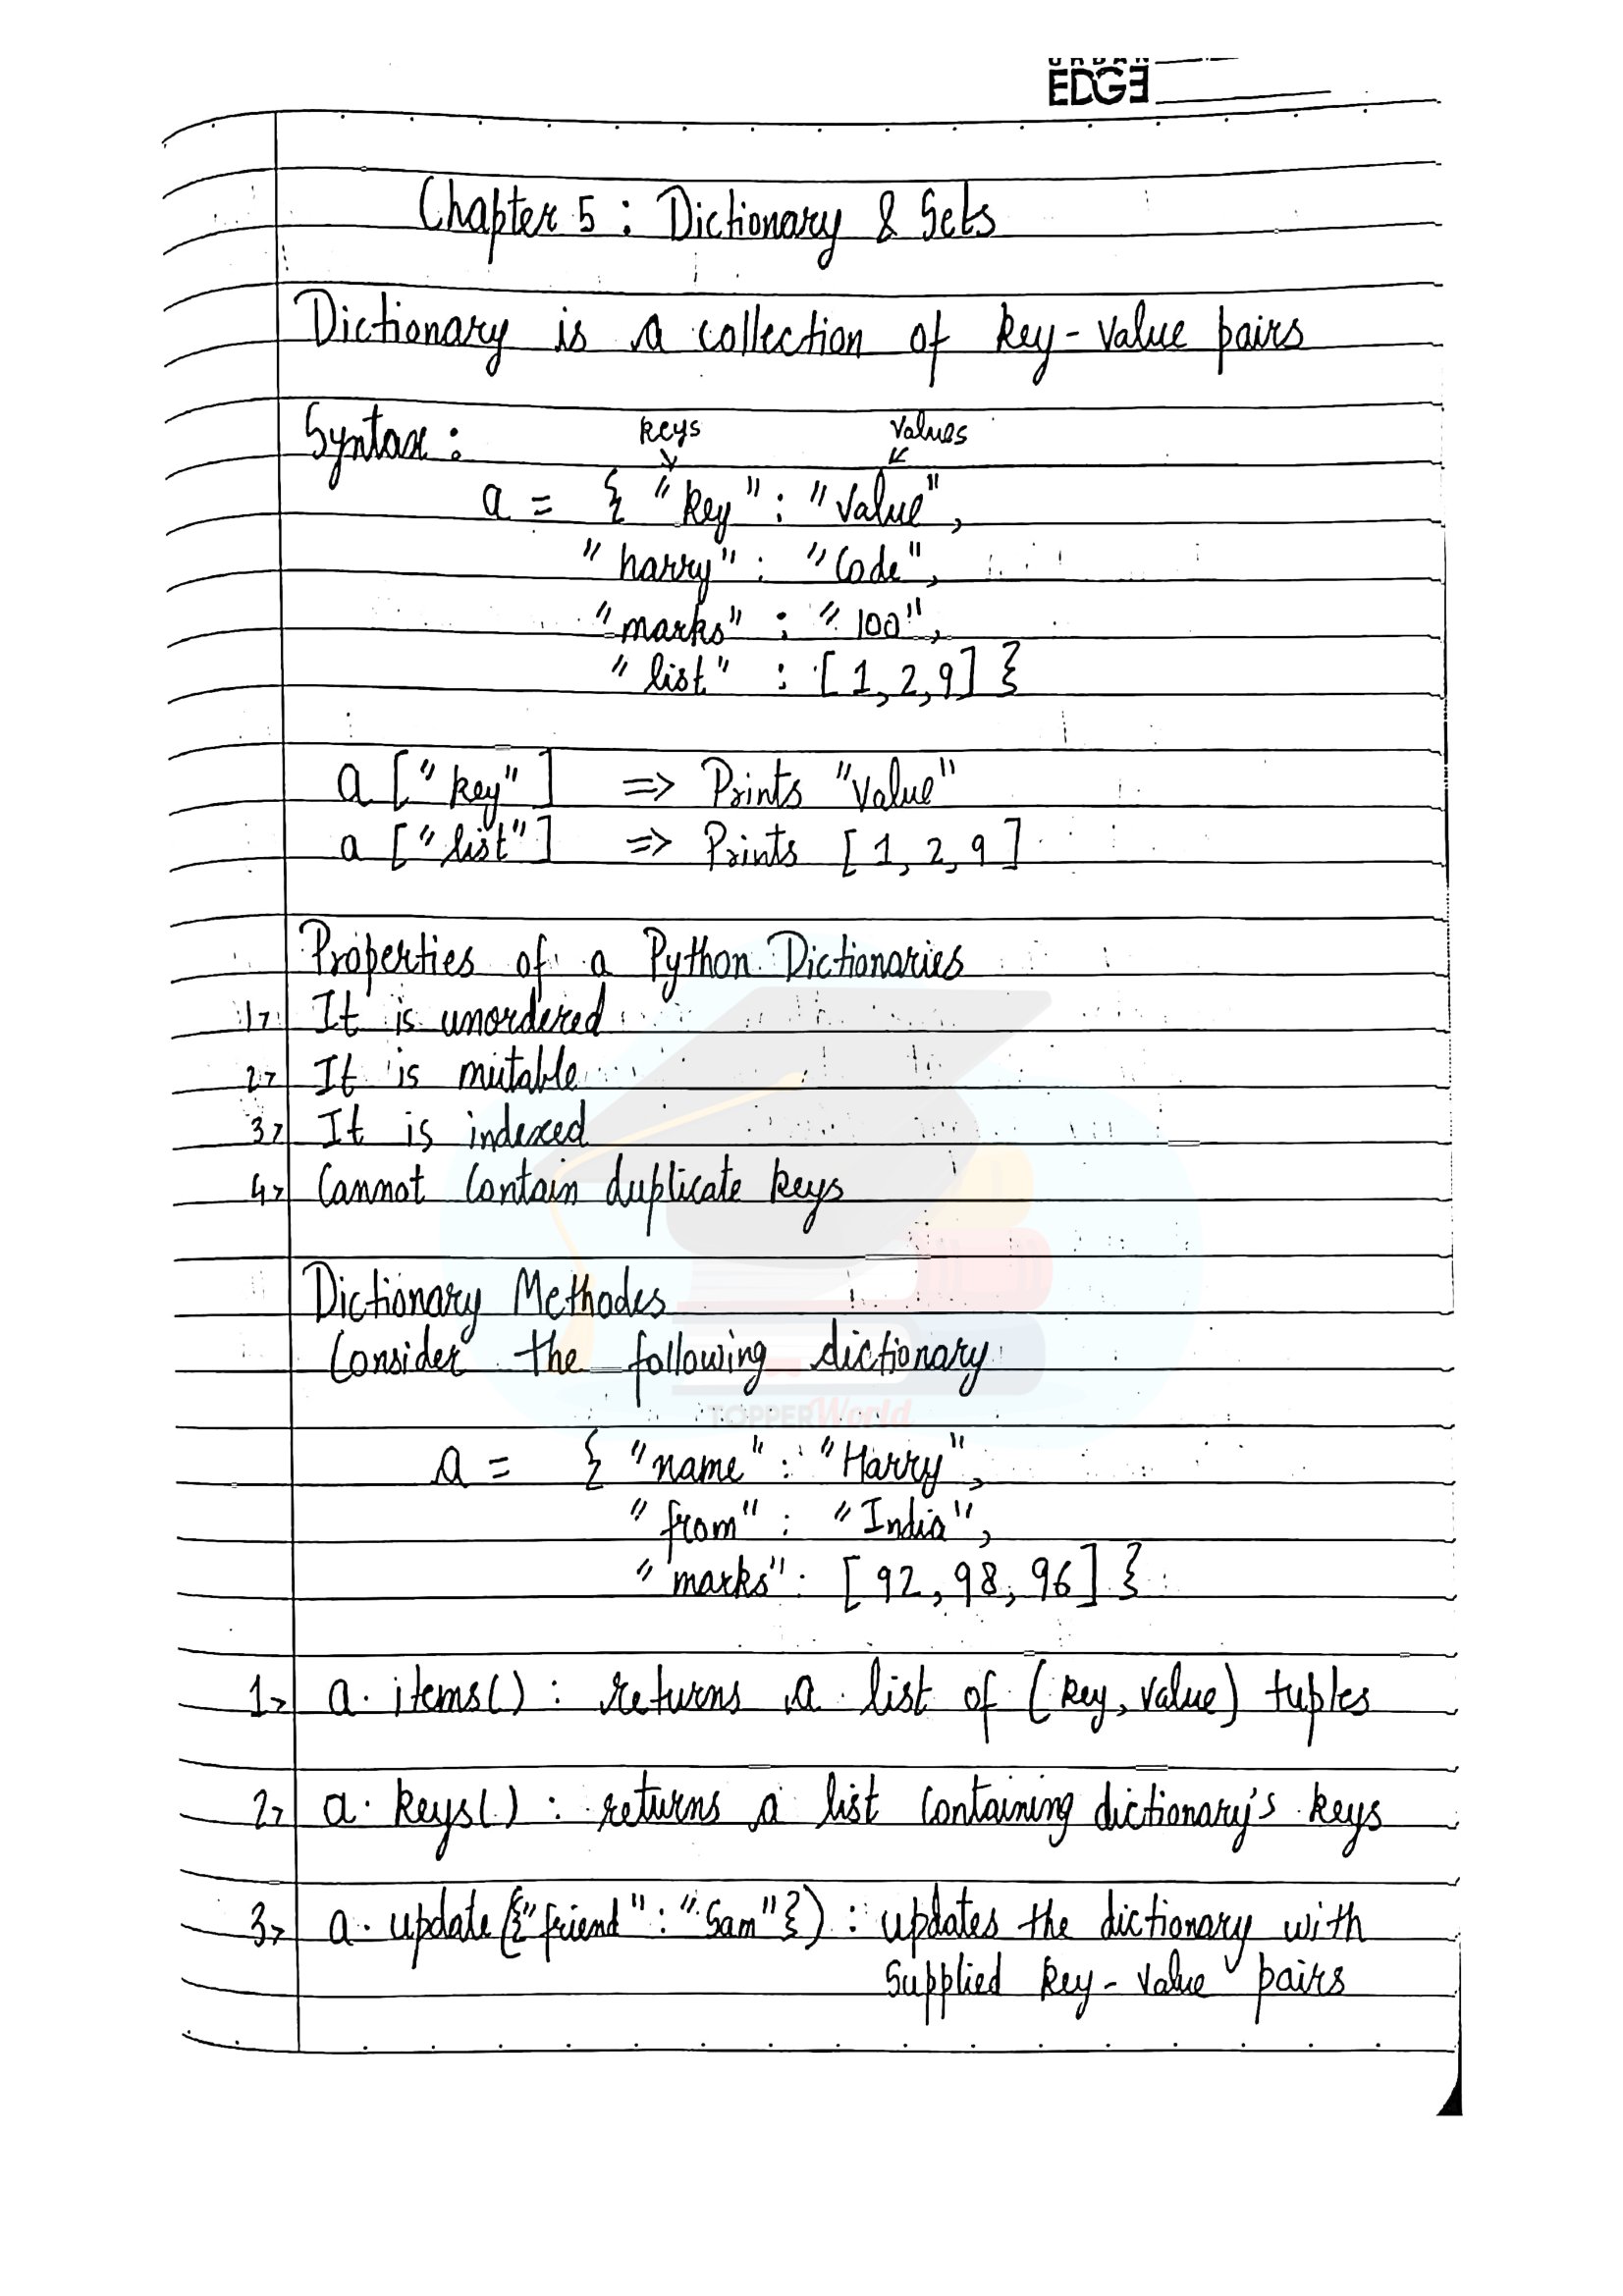 URBAN
EDGE
Chapter 5 : Dictionary & Sets
Dictionary is a collection of key-value pairs
Syntax : keys values
a = { "key" : "Value",
"harry" : "Code",
"marks" : "100",
"list" : [1,2,9] }
a ["key"] => Prints "Value"
a ["list"] => Prints [1,2,9]
Properties of a Python Dictionaries
1> It is unordered
2> It is mutable
3> It is indexed
4> Cannot Contain duplicate keys
Dictionary Methodes
Consider the following dictionary
TOPPERWorld
a = { "name" : "Harry",
"from" : "India",
"marks" : [92,98,96] }
1> a.items() : returns a list of (key,value) tuples
2> a.keys() : returns a list containing dictionary's keys
3> a.update({"friend" : "Sam"}) : updates the dictionary with
Supplied key-value pairs